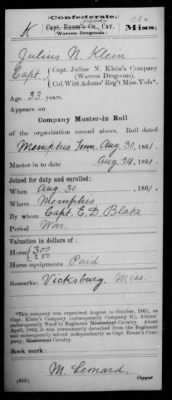 (Confederate.)
K
Capt. Baum's Co., Cav.
(Warren Dragoons.)
Miss.
Julius N. Klein
Capt., Capt. Julius N. Klein's Company
(Warren Dragoons),
Col. Wirt Adams' Reg't Miss. Vols*.
Age 33 years.
Appears on
Company Muster-in Roll
of the organization named above. Roll dated
Memphis Tenn. Aug. 30, 1861.
Muster-in to date Aug 24, 1861.
Joined for duty and enrolled:
When Aug 30, 1861.
Where Memphis
By whom Capt. E. D. Blake
Period War
Valuation in dollars of:
Horse
Horse equipments Paid
Remarks: Vicksburg, Miss.
*This company was organized August to October, 1861, as
Book mark:
M. Leonard
Copyist.